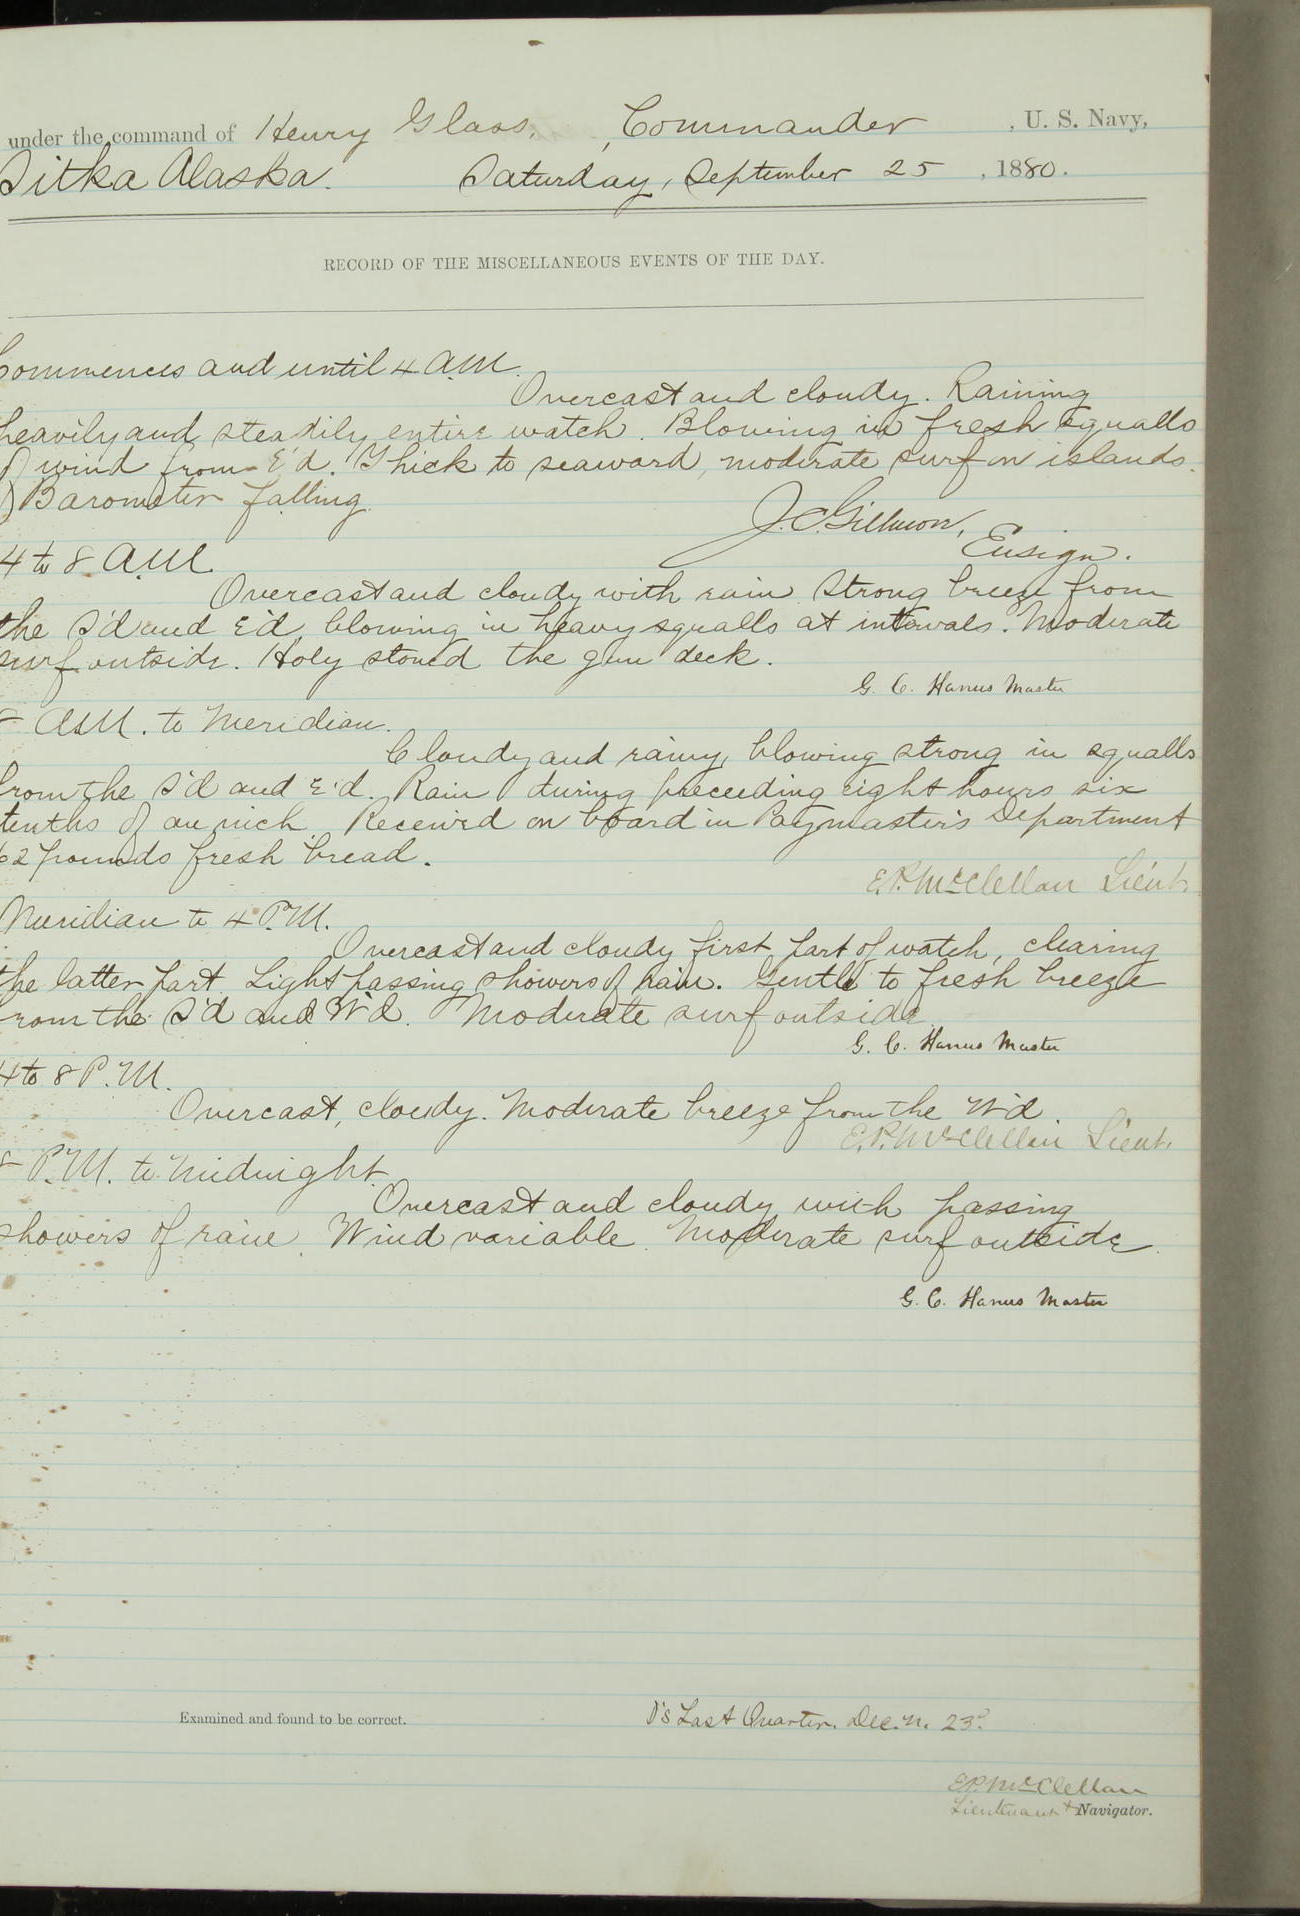 under the command of Henry Glass, , Commander , U. S. Navy,
Sitka Alaska. Saturday, September 25 , 1880.
RECORD OF THE MISCELLANEOUS EVENTS OF THE DAY.
Commences and until 4 A.M.
Overcast and cloudy. Raining
heavily and steadily entire watch. Blowing in fresh squalls
of wind from E'd. Thick to seaward, moderate surf on islands.
Barometer falling.
J. C. Gillmore,
Ensign.
4 to 8 A.M.
Overcast and cloudy with rain. Strong breeze from
the S'd and E'd, blowing in heavy squalls at intervals. Moderate
surf outside. Holy stoned the gun deck.
G. C. Hanus Master
8 A.M. to Meridian.
Cloudy and rainy, blowing strong in squalls
from the S'd and E'd. Rain during preceeding eight hours six
tenths of an inch. Received on board in Paymaster's Department
62 pounds fresh bread.
E.P. McClellan Lieut.
Meridian to 4 P.M.
Overcast and cloudy first part of watch, clearing
the latter part. Light passing showers of rain. Gentle to fresh breeze
from the S'd and W'd. Moderate surf outside
G. C. Hanus Master
4 to 8 P.M.
Overcast, cloudy. Moderate breeze from the W'd
E.P. McClellan Lieut.
8 P.M. to Midnight.
Overcast and cloudy with passing
showers of rain. Wind variable. Moderate surf outside.
G. C. Hanus Master
Examined and found to be correct.
Last Quarter. Dec. N. 23°.
E.P. McClellan
Lieutenant & Navigator.